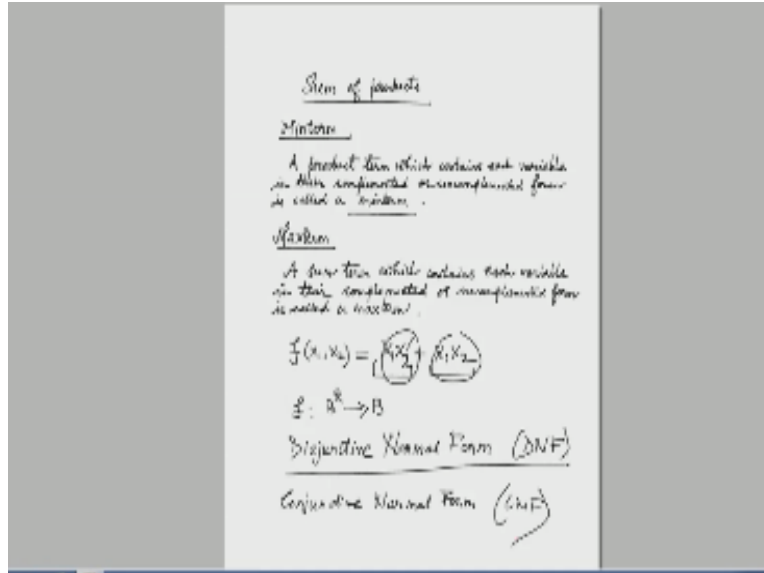 Sum of products
Minterm
A product term which contains each variable
in their complemented or uncomplemented form
is called a minterm.
Maxterm
A sum term which contains each variable
in their complemented or uncomplemented form
is called a maxterm.
f(x₁,x₂) = x₁x₂' + x₁x₂
f: B² → B
Disjunctive Normal Form (DNF)
Conjunctive Normal Form (CNF)